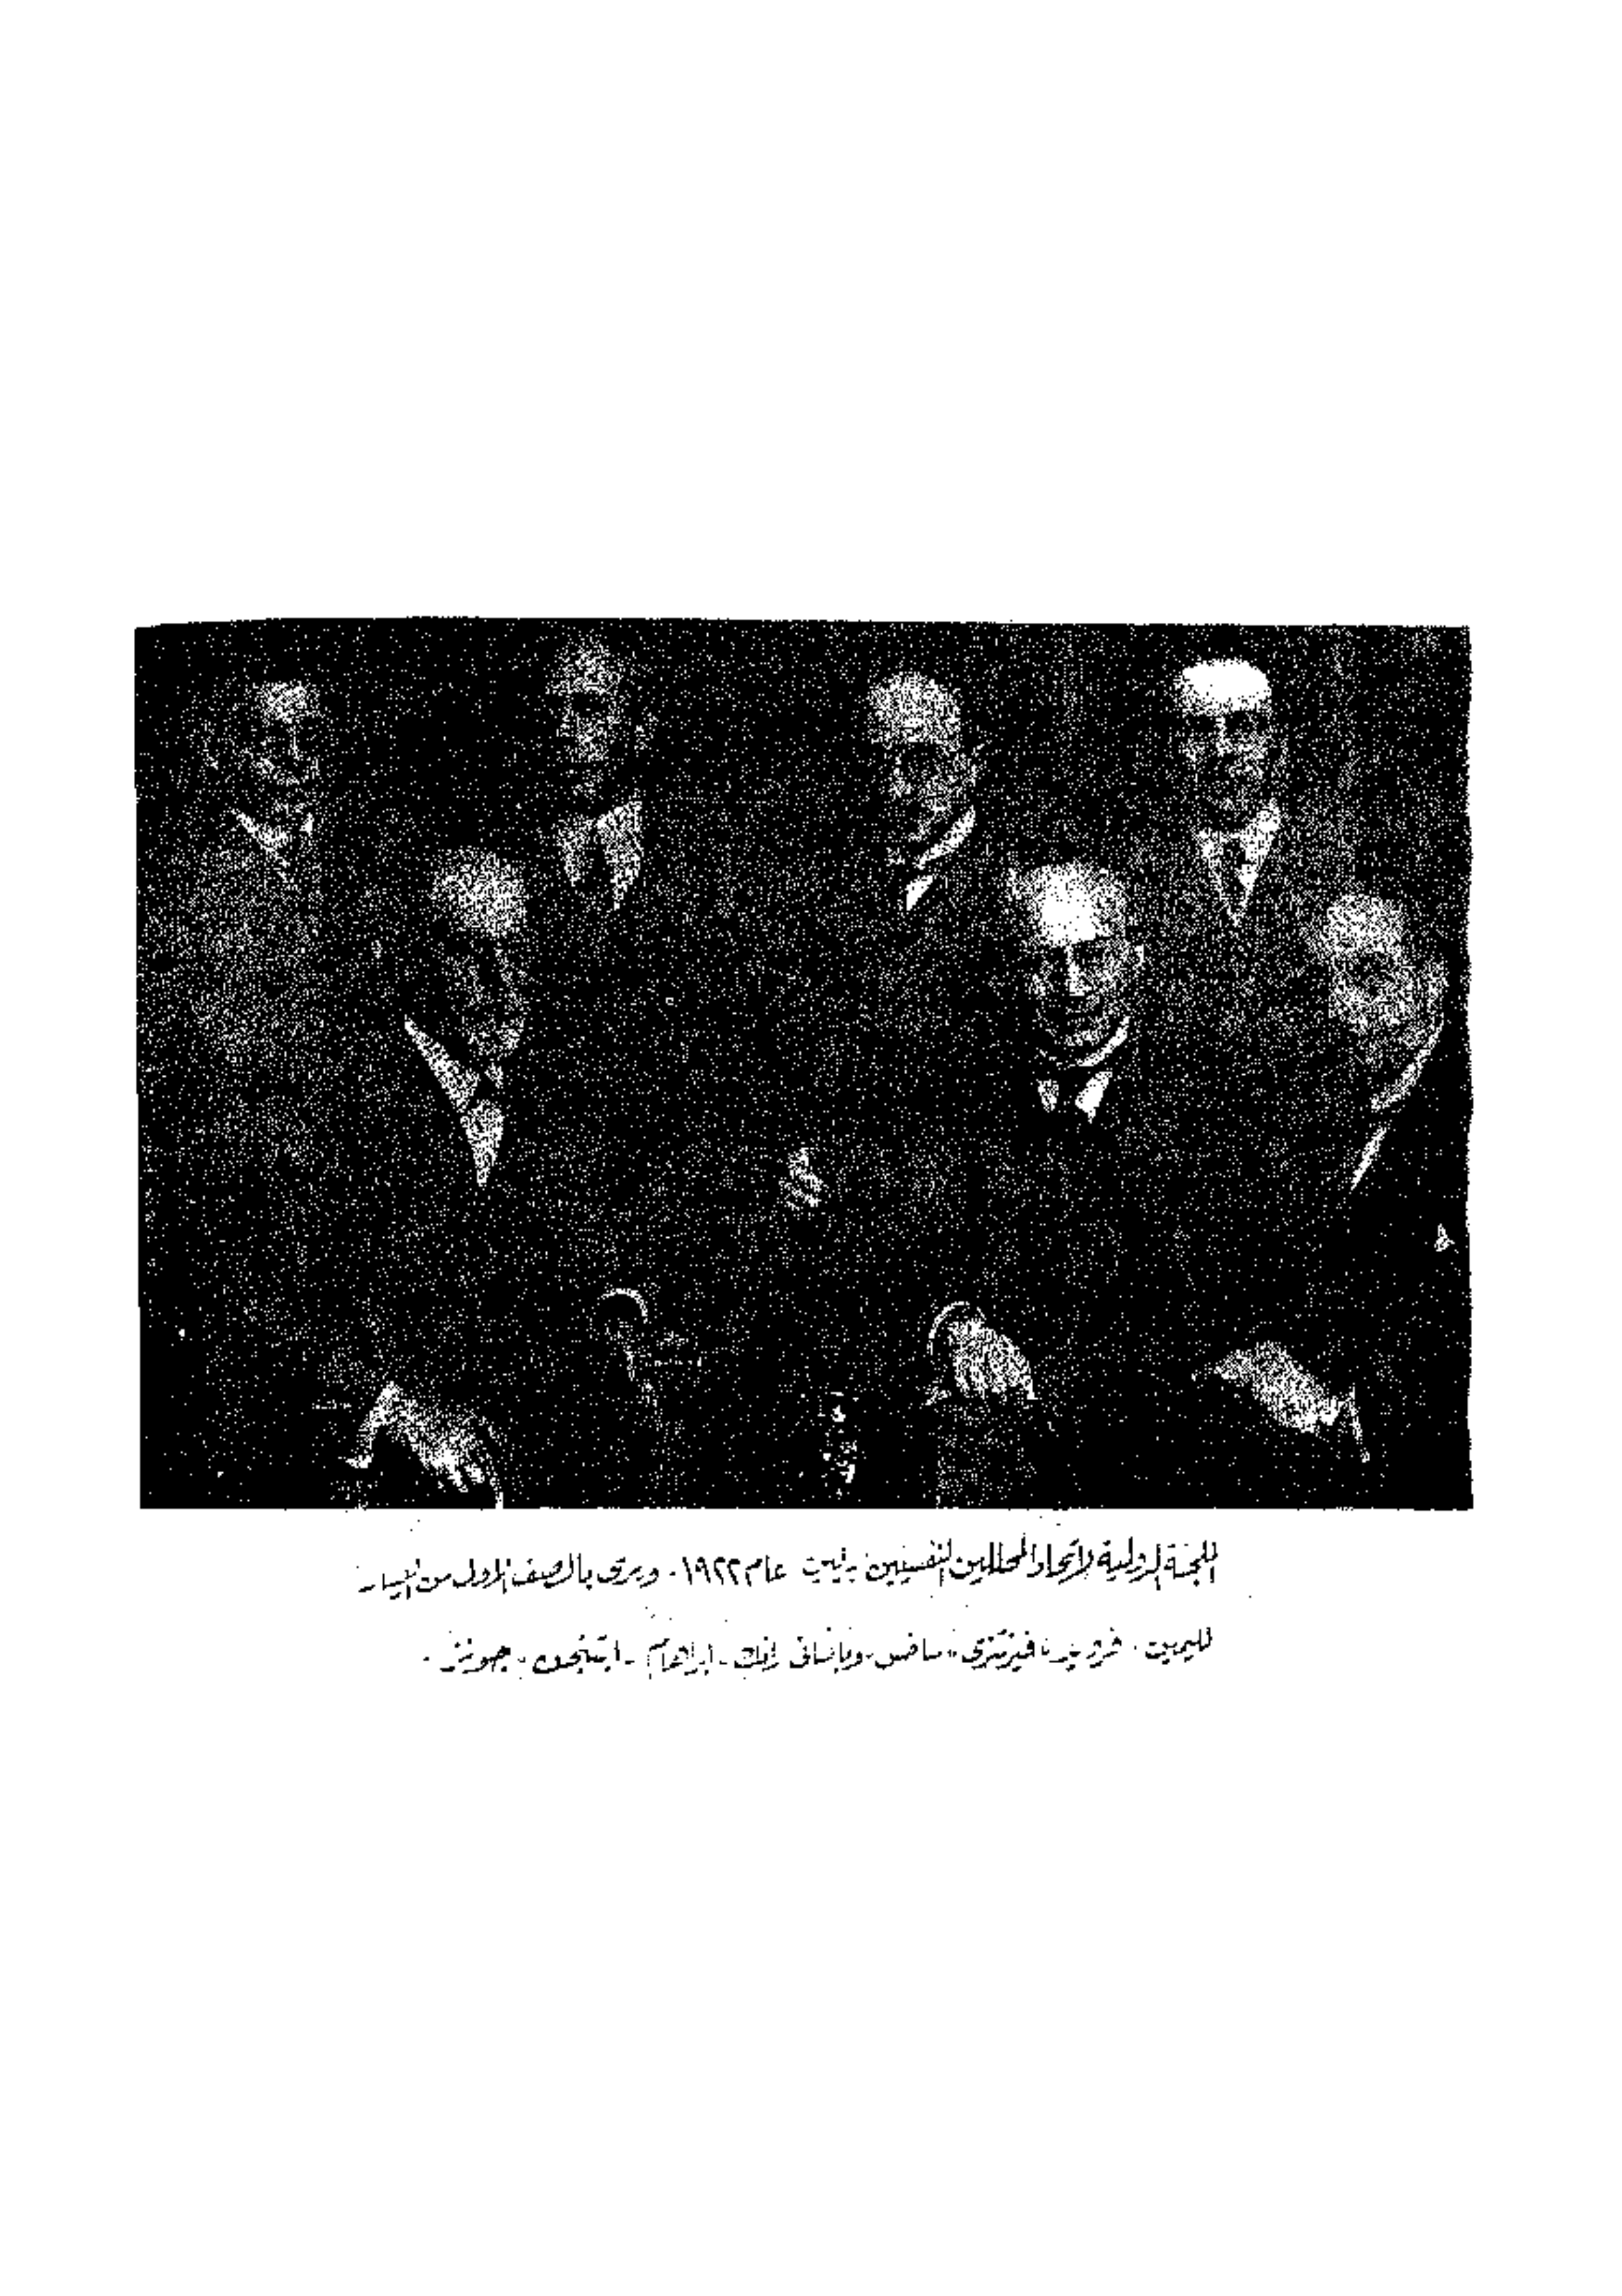 اللجنة الدولية لاتحاد المحللين النفسيين برلين عام ١٩٢٢. ويرى بالصف الأول من اليسار
لليمين. فرويد، فيرنتزى، ساخس، وبالثانى رانك. ابراهام. ايتنجون. جونز.